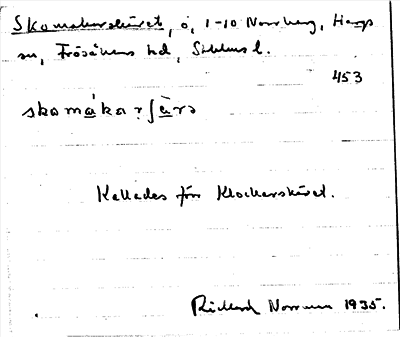 Skomakarskäret, ö, 1-10 Norrberg, Harg
sn, Frösåkers hd, Sthlms l.
453
skomákarʃä̀rə
Kallades för Klockarskäret.
Rickard Norrman 1935.